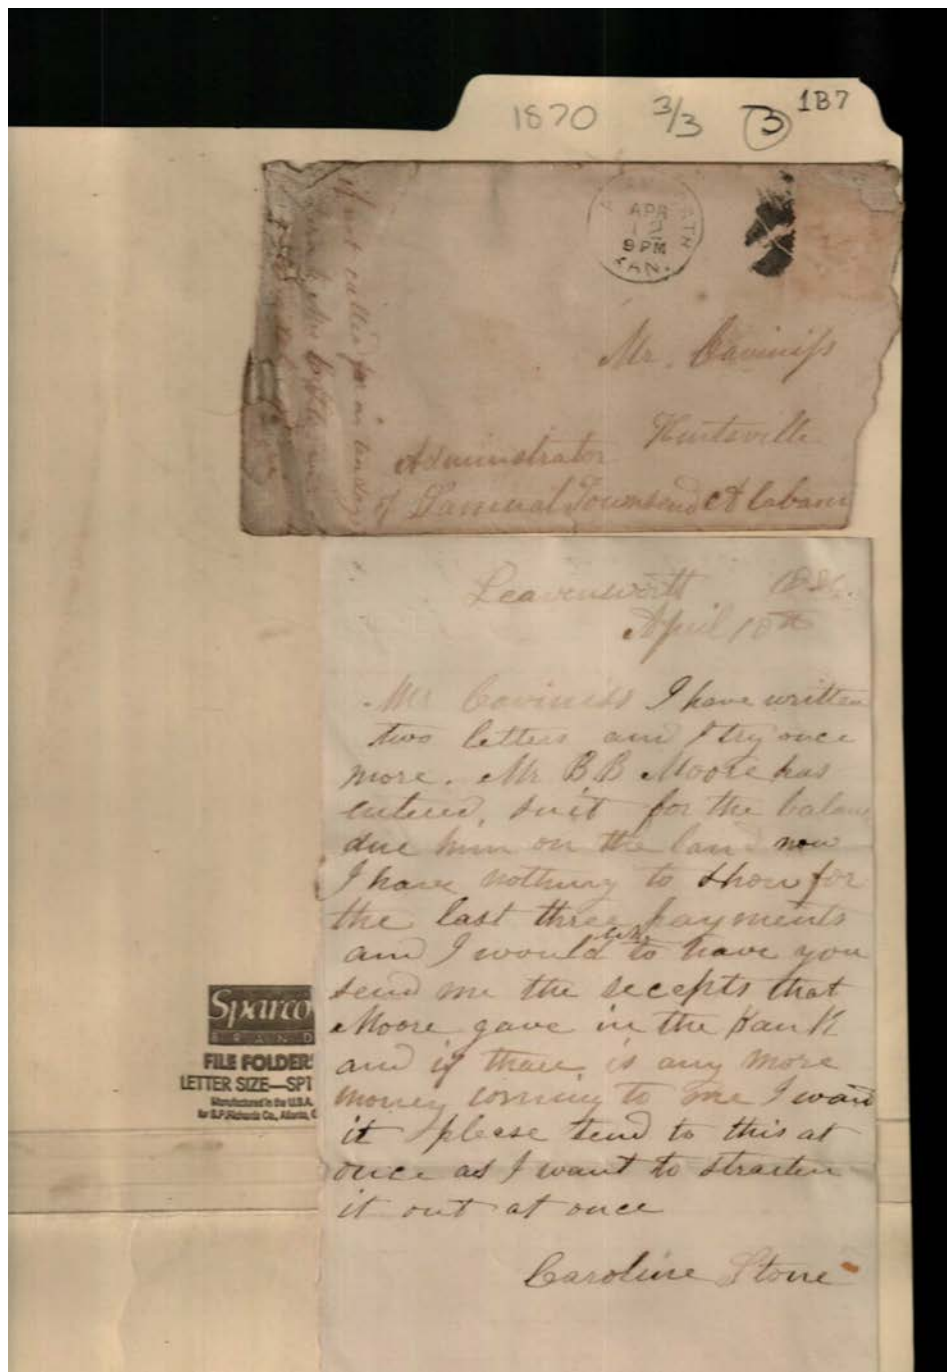 1870 3/3 3 1B7
APR
9 PM
KAN.
Mr. Caviniss
Huntsville
Administrator
of Samual Townsend Alabam
if not called for in ten days
Leavenworth
April 18th
Mr Caviniss I have written
two letters and I try once
more. Mr B B Moore has
entered, suit for the balanc
due him on the land now
I have nothing to show for
the last three payments
and I would to have you
send me the recepts that
Moore gave in the Bank
and if thare is any more
money coming to me I want
it please tend to this at
once as I want to straiten
it out at once
Caroline Stone
Sparco
BRAND
FILE FOLDER
LETTER SIZE—SP1
Manufactured in the U.S.A.
for S.P. Richards Co., Atlanta, G